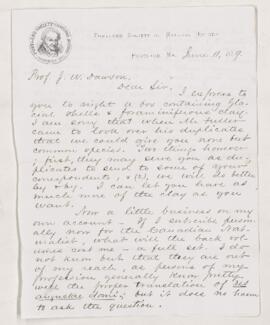 PORTLAND SOCIETY OF NATURAL HISTORY
PORTLAND, ME. June 11, 1869.
Prof. J. W. Dawson.
Dear Sir,
I express to
you to night a box containing Gla-
cial shells & foraminiferous clay.
I am sorry that when Mr Fuller
came to look over his duplicates
that we could give you none but
common species. Two things however
; first, they may serve you as du-
plicates to send to some of your
correspondents, & (2), we will do better
by & by. I can let you have as
much more of the clay as you
want.
Now a little business on my
own account — If I subscribe person-
ally now for the Canadian Nat-
uralist, what will the back vol-
umes cost me — a full set. I do
not know but that they are out
of my reach, as persons of my
profession generally know pretty
well the proper translation of
; but it does no harm
to ask the question.